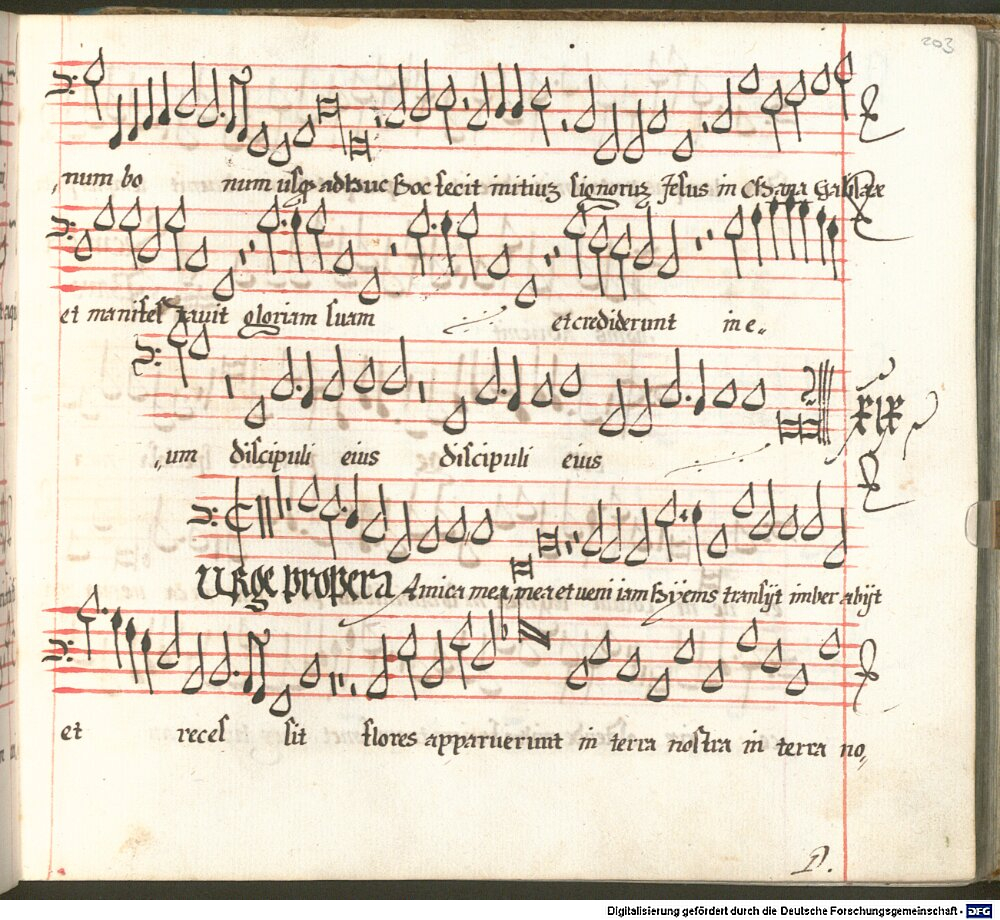 203
num bo num usq adhuc hoc fecit initiuz signoruz Jesus in Chana Galilaeae
et manifestavit gloriam suam et crediderunt in e„
„um discipuli eius discipuli eius
XIX
Urge propera Amica mea, mea et veni iam hyems transijt imber abijt
et recessit flores apparuerunt in terra nostra in terra no„
Digitalisierung gefördert durch die Deutsche Forschungsgemeinschaft - DFG